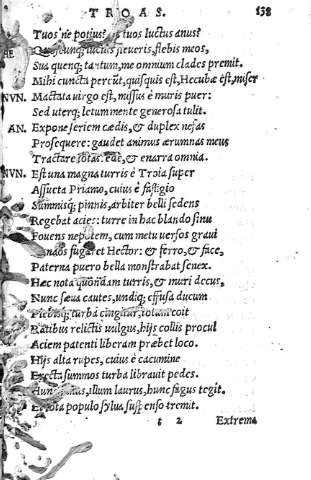 TROAS. 138
Tuos ne potius? tuos luctus anus?
HE luctus fleueris, flebis meos,
Sua quenq; tantum, me omnium clades premit.
Mihi cuncta pereũt, quisquis est, Hecubæ est, miser
NVN. Mactata uirgo est, missus è muris puer:
Sed uterq; letum mente generosa tulit.
AN. Expone seriem cædis, & duplex nefas
Prosequere: gaudet animus ærumnas meus
Tractare totas. ede, & enarra omnia.
NVN. Est una magna turris è Troia super
Assueta Priamo, cuius è fastigio
Summisq; pinnis, arbiter belli sedens
Regebat acies: turre in hac blando sinu
Fouens nepotem, cum metu uersos graui
Danaos fugaret Hector: & ferro, & face,
Paterna puero bella monstrabat senex.
Hæc nota quondam turris, & muri decus,
Nunc sæua cautes, undiq; effusa ducum
Plebisq; turba cingitur, totum coit
Ratibus relictis uulgus, hijs collis procul
Aciem patenti liberam præbet loco.
Hijs alta rupes, cuius è cacumine
Erecta summos turba librauit pedes.
Hunc pinus, illum laurus, hunc fagus tegit.
Et tota populo sylua suspenso tremit.
s 2 Extrema